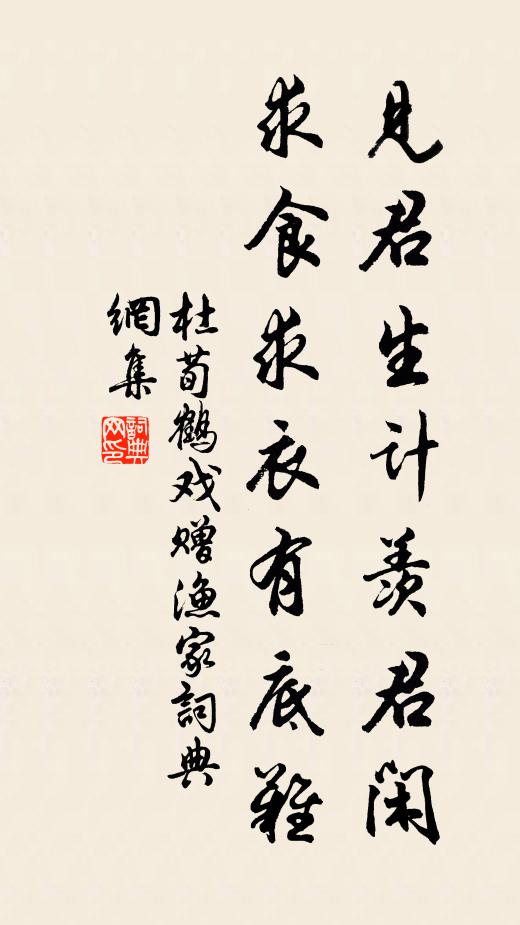 见君生计羡君闲
求食求衣有底难
杜荀鹤戏赠渔家词典
网集
词典
网印